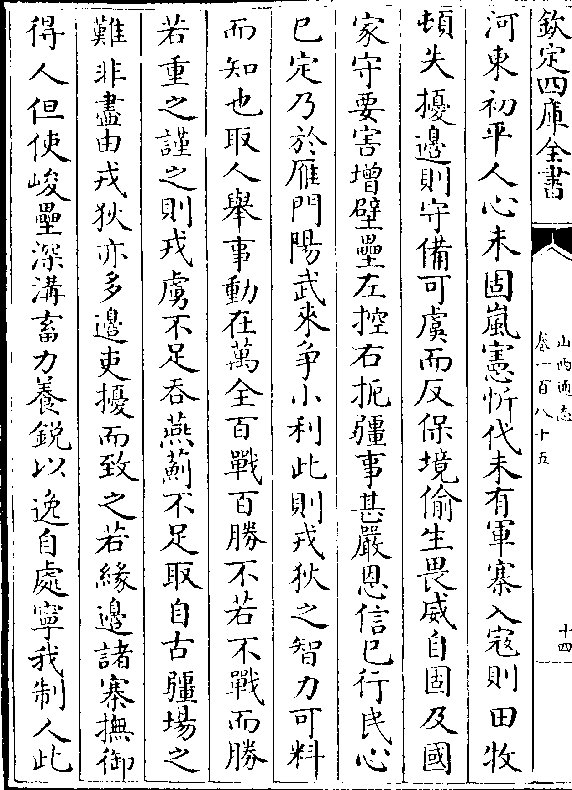 欽定四庫全書
山西通志
卷一百八十五
十四
河東初平人心未固嵐憲忻代未有軍寨入寇則田牧
頓失擾邊則守備可虞而反保境偷生畏威自固及國
家守要害增壁壘左控右扼疆事甚嚴恩信已行民心
已定乃於雁門陽武來爭小利此則戎狄之智力可料
而知也取人舉事動在萬全百戰百勝不若不戰而勝
若重之謹之則戎虜不足吞燕薊不足取自古疆場之
難非盡由戎狄亦多邊吏擾而致之若緣邊諸寨撫御
得人但使峻壘深溝畜力養銳以逸自處寧我制人此